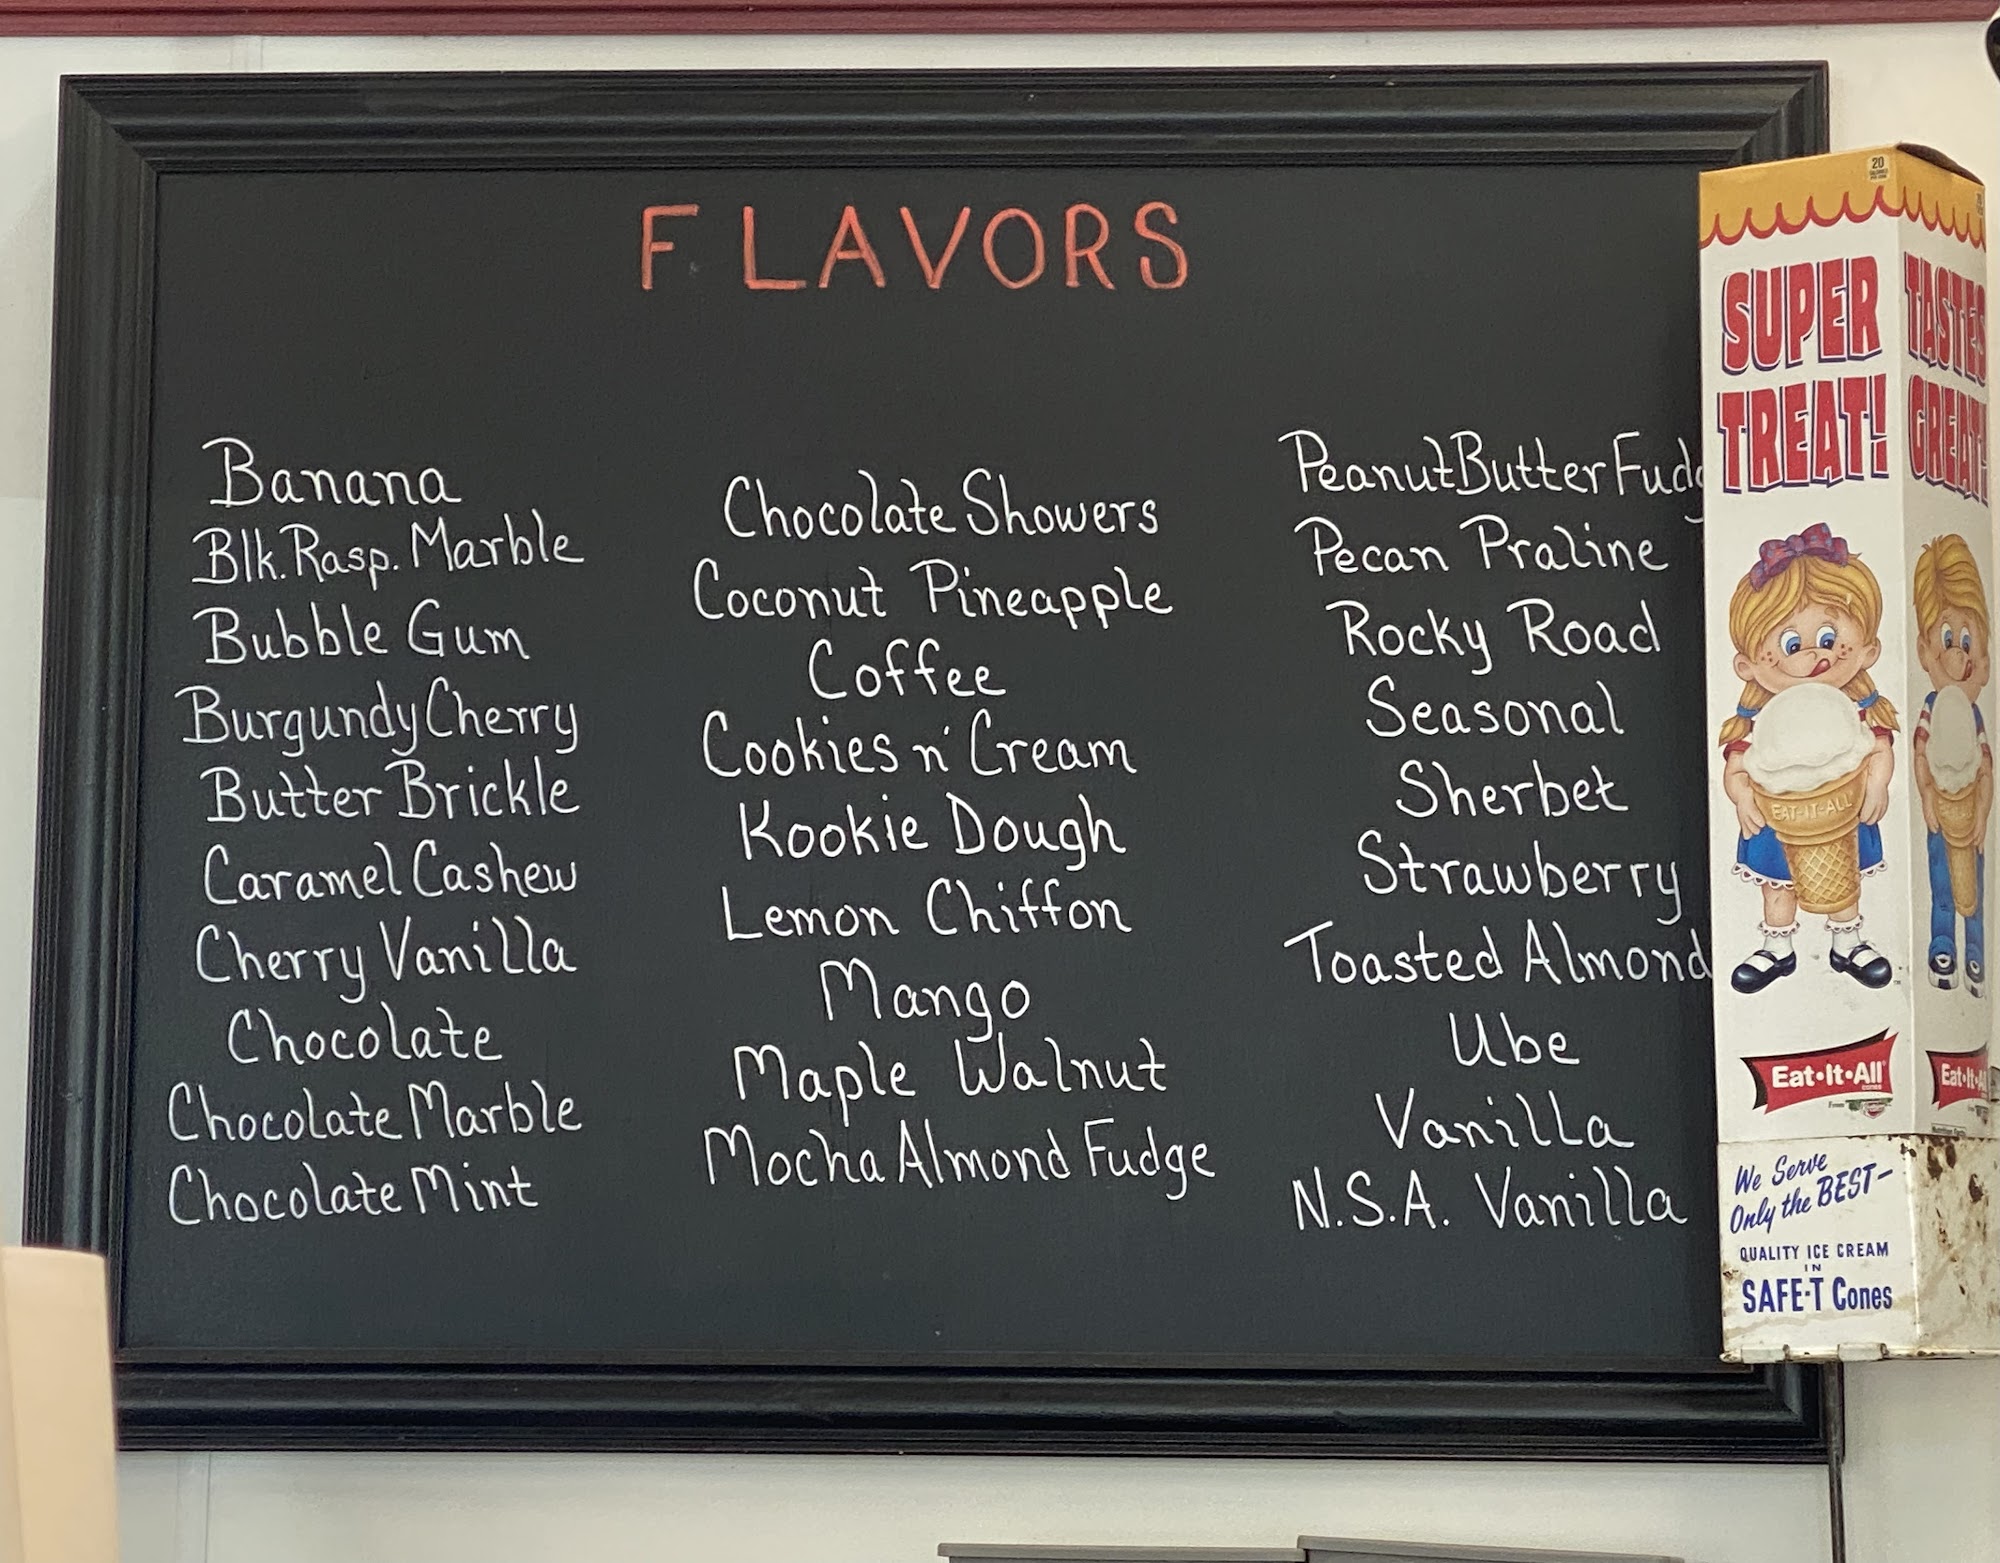 FLAVORS
Banana
Blk. Rasp. Marble
Bubble Gum
Burgundy Cherry
Butter Brickle
Caramel Cashew
Cherry Vanilla
Chocolate
Chocolate Marble
Chocolate Mint
Chocolate Showers
Coconut Pineapple
Coffee
Cookies n' Cream
Kookie Dough
Lemon Chiffon
Mango
Maple Walnut
Mocha Almond Fudge
Peanut Butter Fudg
Pecan Praline
Rocky Road
Seasonal
Sherbet
Strawberry
Toasted Almond
Ube
Vanilla
N.S.A. Vanilla
20
SUPER
TREAT!
EAT-IT-ALL
Eat•It•All®
cones
From
We Serve
Only the BEST-
QUALITY ICE CREAM
IN
SAFE-T Cones
TASTES
GREAT!
Eat•It•A